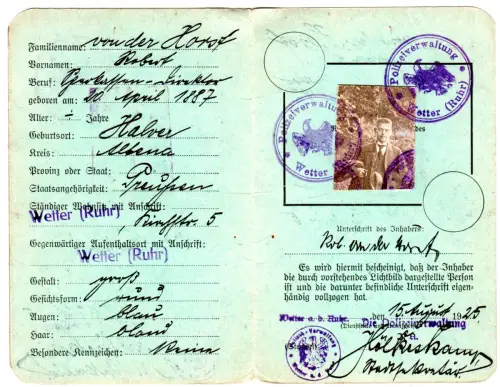 Familienname: von der Horst
Vornamen: Robert
Beruf: Sparkassen-Direktor
geboren am: 20 April 1887
Alter: Jahre
Geburtsort: Halver
Kreis: Altena
Proving oder Staat:
Staatsangehörigkeit: Preußen
Ständiger Wohnsitz mit Anschrift:
Wetter (Ruhr) Kirchstr. 5
Gegenwärtiger Aufenthaltsort mit Anschrift:
Wetter (Ruhr)
Gestalt: groß
Gesichtsform: rund
Augen: blau
Haar: blond
Besondere Kennzeichen: keine
Polizeiverwaltung
Wetter (Ruhr)
Polizeiverwaltung
Wetter (Ruhr)
Unterschrift des Inhabers:
Rob. von der Horst
Es wird hiermit bescheinigt, daß der Inhaber
die durch vorstehendes Lichtbild dargestellte Person
ist und die darunter befindliche Unterschrift eigen-
händig vollzogen hat.
Wetter a. d. Ruhr, den 15 August 1925
Die Polizeiverwaltung
Stadtsekretär